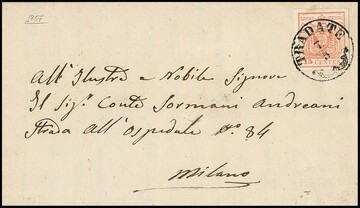 1857
TRADATE
7
5
CENTES
All' Ilustre e Nobile Signore
Il Sigr. Conte Sormani Andreani
Strada all' Ospedale No. 84
Milano